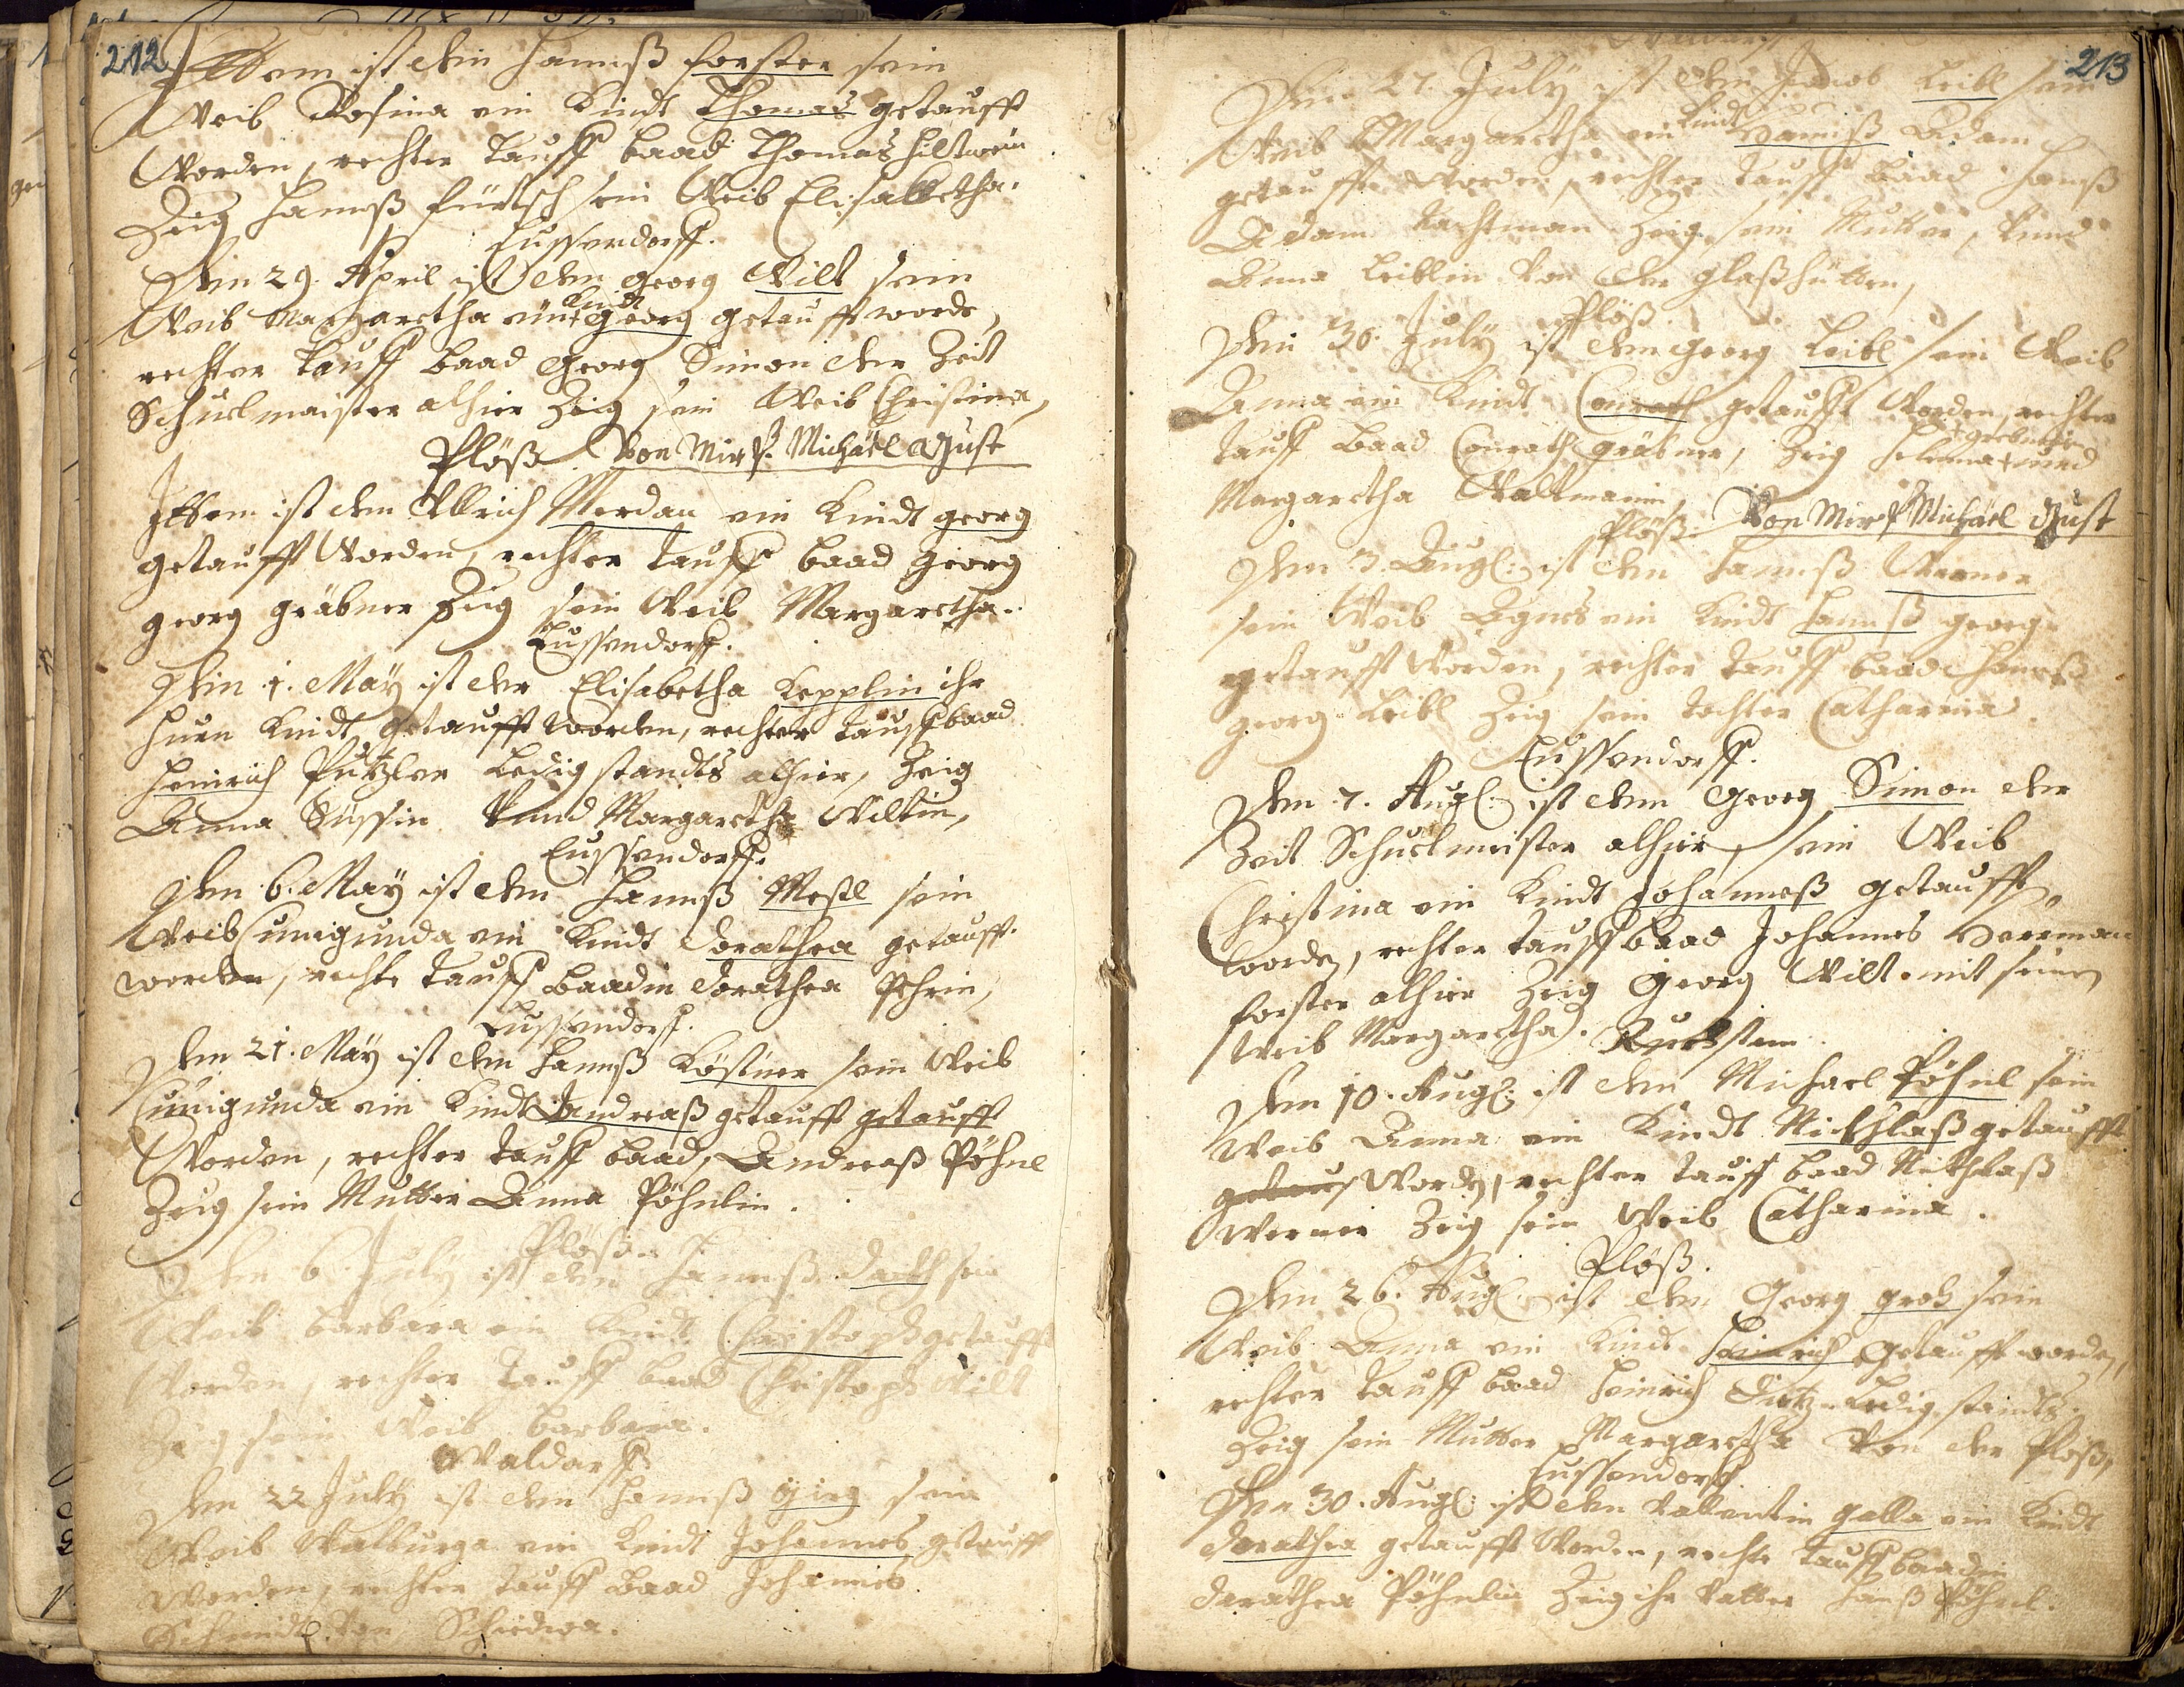 212
Ittem ist dem Hannß forster sein
Weib Rosina ein Kindt Thomas getaufft
Worden, rechter Tauff baad Thomas hiltwein
Zeig Hannß fürtsch sein Weib Elisabetha.
Eussendorff.
Den 29. April ist dem georg Wilt sein
Weib Margaretha ein Kindt georg getaufft worde,
rechter Tauff baad Georg Simon der Zeit
Schuelmaister alhier Zeig sein Weib Christina,
Plöß Von Mir P. Michäel Just
Ittem ist dem Ullrich Merdan ein Kindt georg
getaufft Worden, rechter Tauff baad georg
georg gräbner Zeug sein Weib Margaretha.
Eussendorff.
Den 1. May ist der Elisabetha Kepplin ihr
Huen Kindt getaufft worden, rechter Tauff baad
Heinrich Putzler Ledig standts alhier, Zeig
Anna Süssin Vnnd Margaretha Wiltin,
Eussendorff.
Den 6. May ist dem Hannß Messl sein
Weib Cunigunda ein Kindt dorathea getaufft
worden, rechte Tauff baadin dorathea
Eussendorff.
Den 21. May ist dem Hannß Köstner sein Weib
Cunigunda ein Kindt Andreaß getaufft getaufft
Worden, rechter Tauff baad, Andreaß Pöhnl
Zeig sein Mutter Anna Pöhnlin.
Plöß.
Den 6. July ist dem Hannß sein
Weib barbara ein Kindt Christoph getaufft
Worden, rechter Tauff baad Christoph Wilt
Zeig sein Weib barbara.
Waldorff
Den 22 July ist dem Hannß sein
Weib Walburga ein Kindt Johannes getaufft
Worden, rechter Tauff baad Johannes
Schmidt Von
213
Den 27. July ist dem Jacob Leibl sein
Weib Margaretha ein Kindt Hannß Adam
getaufft Worden, rechter Tauff baad Hannß
Adam Zeig sein Mutter, Vnnd
Anna Leiblin Von der glaßhütten,
Plöß.
Den 30. July ist dem georg Leibl sein Weib
Anna ein Kindt Conrath getaufft Worden, rechter
Tauff baad Conrath gräbner, Zeig Helena und
Margaretha Waltmanin,
Plöß. Von Mir P. Michäel Just
Den 3. Aug: ist dem Hannß Werner
sein Weib Agnes ein Kindt Hannß georg
getaufft Worden, rechter Tauff baad Hannß
georg Leibl Zeig sein tochter Catharina.
Eussendorff.
Den 7. Aug: ist dem Georg Simon der
Zeit Schuelmeister alhier, sein Weib
Christina ein Kindt Johanneß getaufft
worde, rechter tauff baad Johannes Herrman
forster alhier Zeig Georg Wilt mit seinen
Weib Margaretha.
Den 10. Aug: ist dem Michael Pöhnl sein
Weib Anna ein Kindt Nickhlaß getaufft
Worde, rechter Tauff baad Nickhlaß
Werner Zeig sein Weib Catharina.
Plöß.
Den 26. Aug: ist dem Georg groh sein
Weib Anna ein Kindt Heinrich getaufft worde,
rechter Tauff baad Heinrich Dietz Ledig standts.
Zeig sein Mutter Margaretha Von der Plöß,
Eussendorff
Den 30. Aug: ist dem Vallentin galla ein Kindt
dorathea getaufft Worden, rechte Tauff baadin
dorathea Pöhnlin Zeig ihr Vatter Hanß Pöhnl.